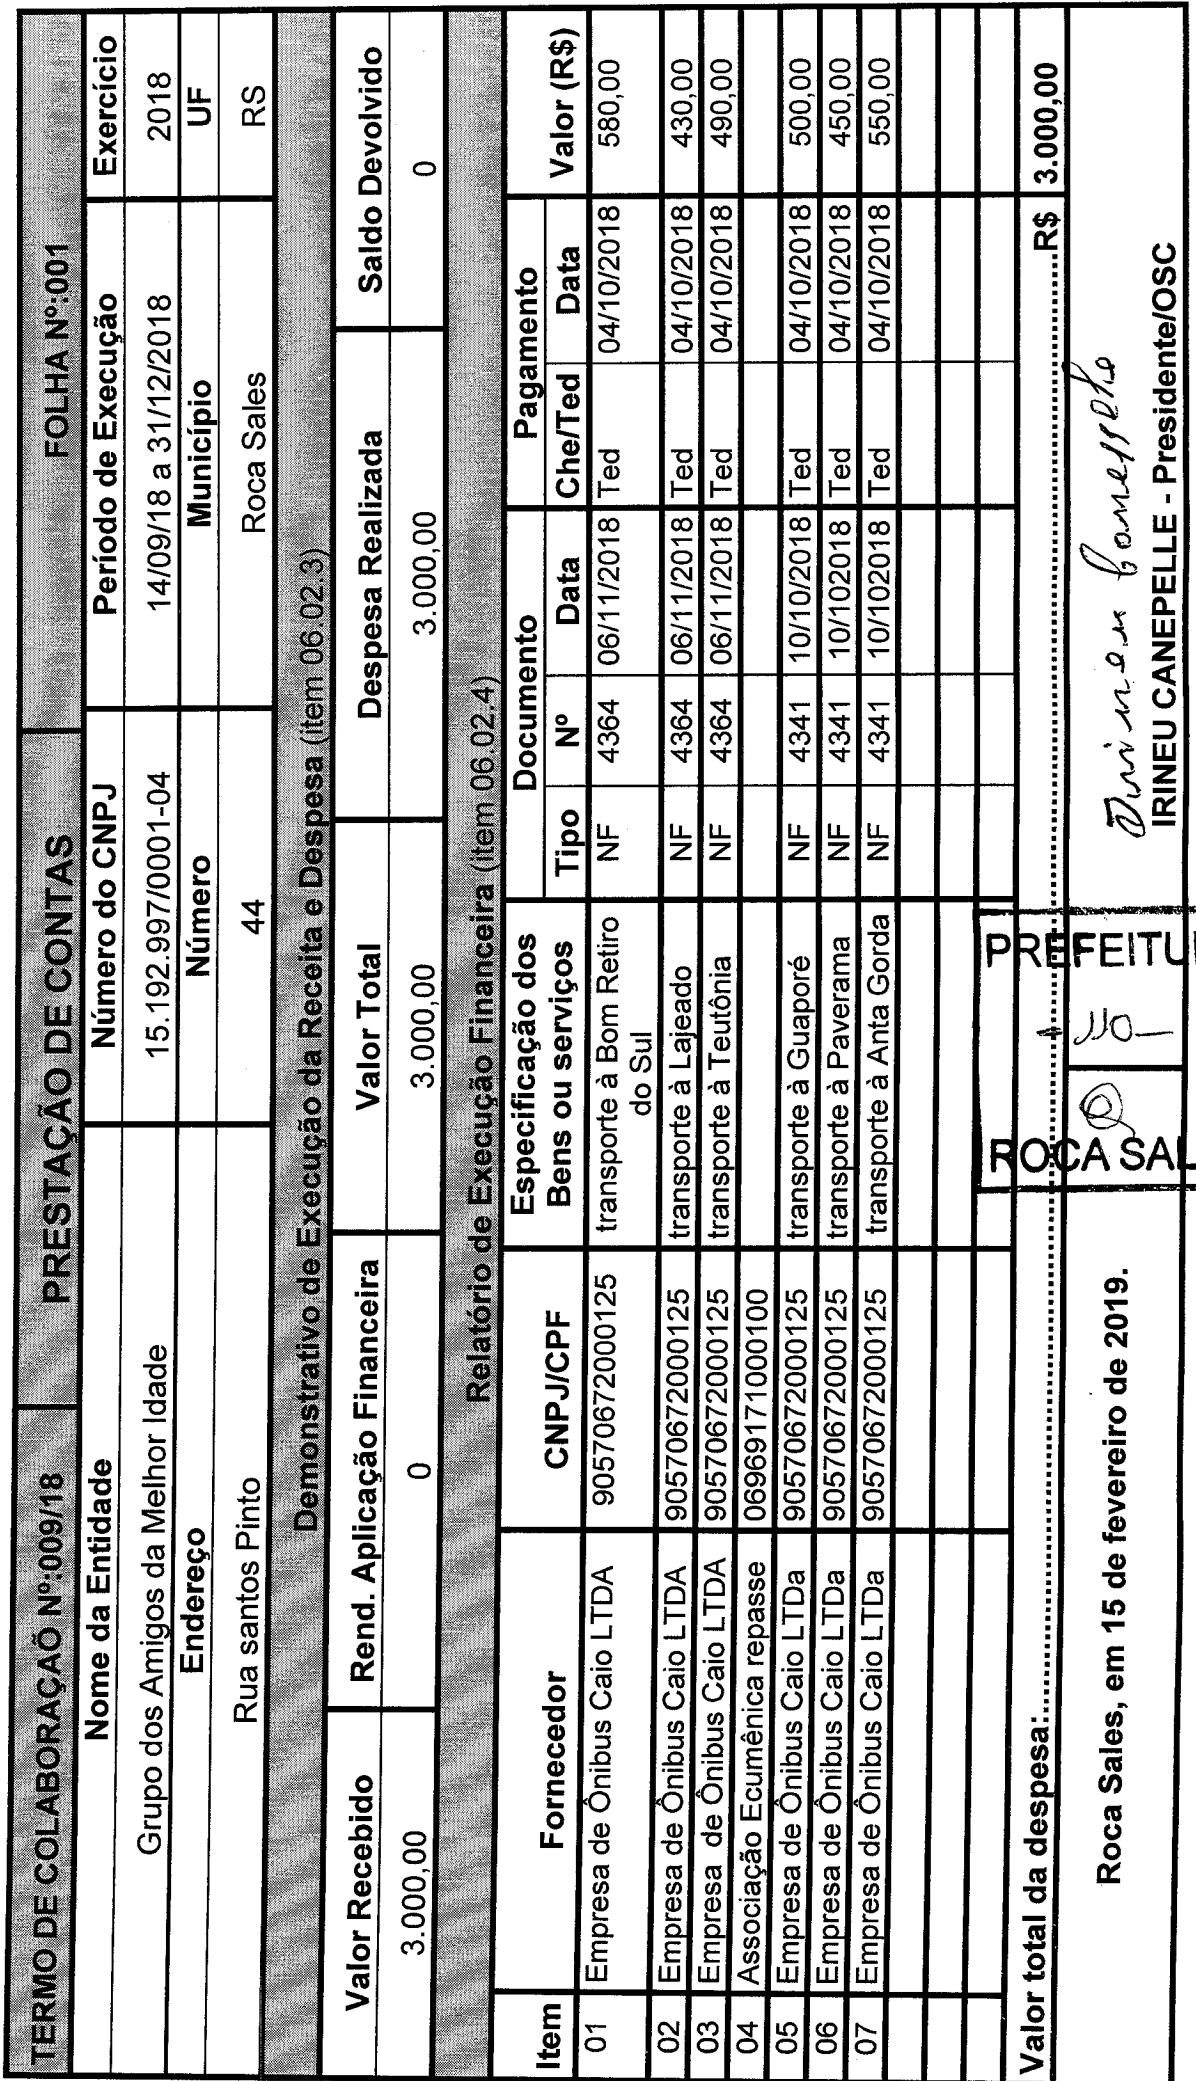 TERMO DE COLABORAÇAÕ Nº:009/18 PRESTAÇÃO DE CONTAS FOLHA Nº:001
Nome da Entidade Número do CNPJ Período de Execução Exercício
Grupo dos Amigos da Melhor Idade 15.192.997/0001-04 14/09/18 a 31/12/2018 2018
Endereço Número Município UF
Rua santos Pinto 44 Roca Sales RS
Demonstrativo de Execução da Receita e Despesa (item 06.02.3)
Valor Recebido Rend. Aplicação Financeira Valor Total Despesa Realizada Saldo Devolvido
3.000,00 0 3.000,00 3.000,00 0
Relatório de Execução Financeira (item 06.02.4)
Item Fornecedor CNPJ/CPF Especificação dos Bens ou serviços Documento Pagamento Valor (R$)
Tipo Nº Data Che/Ted Data
01 Empresa de Ônibus Caio LTDA 90570672000125 transporte à Bom Retiro do Sul NF 4364 06/11/2018 Ted 04/10/2018 580,00
02 Empresa de Ônibus Caio LTDA 90570672000125 transporte à Lajeado NF 4364 06/11/2018 Ted 04/10/2018 430,00
03 Empresa de Ônibus Caio LTDA 90570672000125 transporte à Teutônia NF 4364 06/11/2018 Ted 04/10/2018 490,00
04 Associação Ecumênica repasse 06969171000100
05 Empresa de Ônibus Caio LTDa 90570672000125 transporte à Guaporé NF 4341 10/10/2018 Ted 04/10/2018 500,00
06 Empresa de Ônibus Caio LTDa 90570672000125 transporte à Paverama NF 4341 10/102018 Ted 04/10/2018 450,00
07 Empresa de Ônibus Caio LTDa 90570672000125 transporte à Anta Gorda NF 4341 10/102018 Ted 04/10/2018 550,00
Valor total da despesa:..........R$ 3.000,00
Roca Sales, em 15 de fevereiro de 2019.
IRINEU CANEPELLE - Presidente/OSC
PREFEITU
ROCA SAL